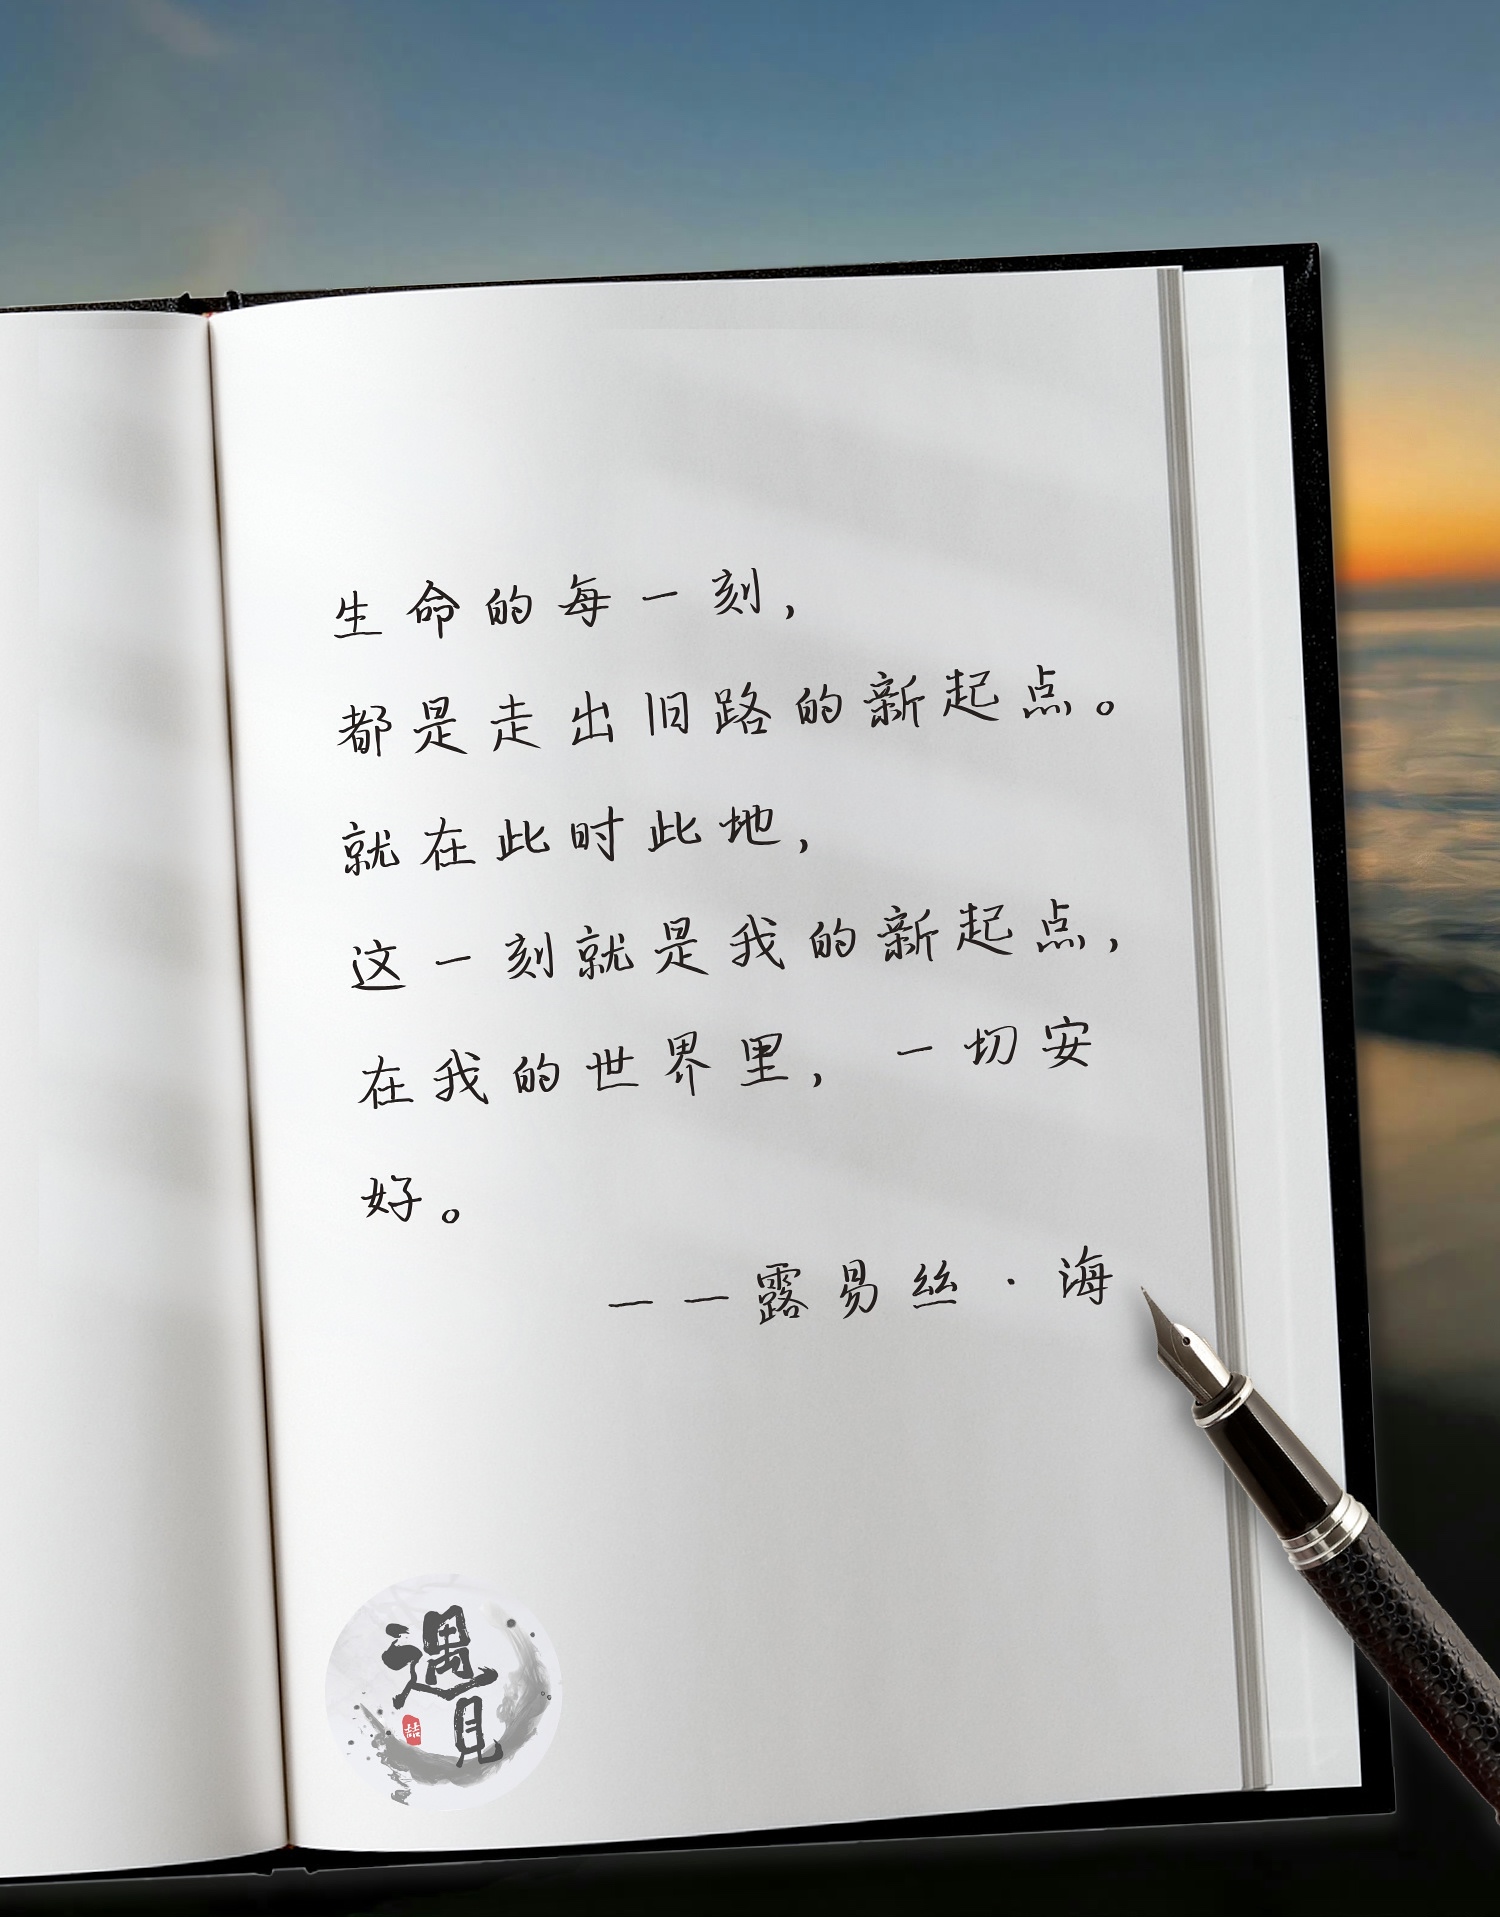 生命的每一刻，
都是走出旧路的新起点。
就在此时此地，
这一刻就是我的新起点，
在我的世界里，一切安
好。
——露易丝·海
遇
见
喆